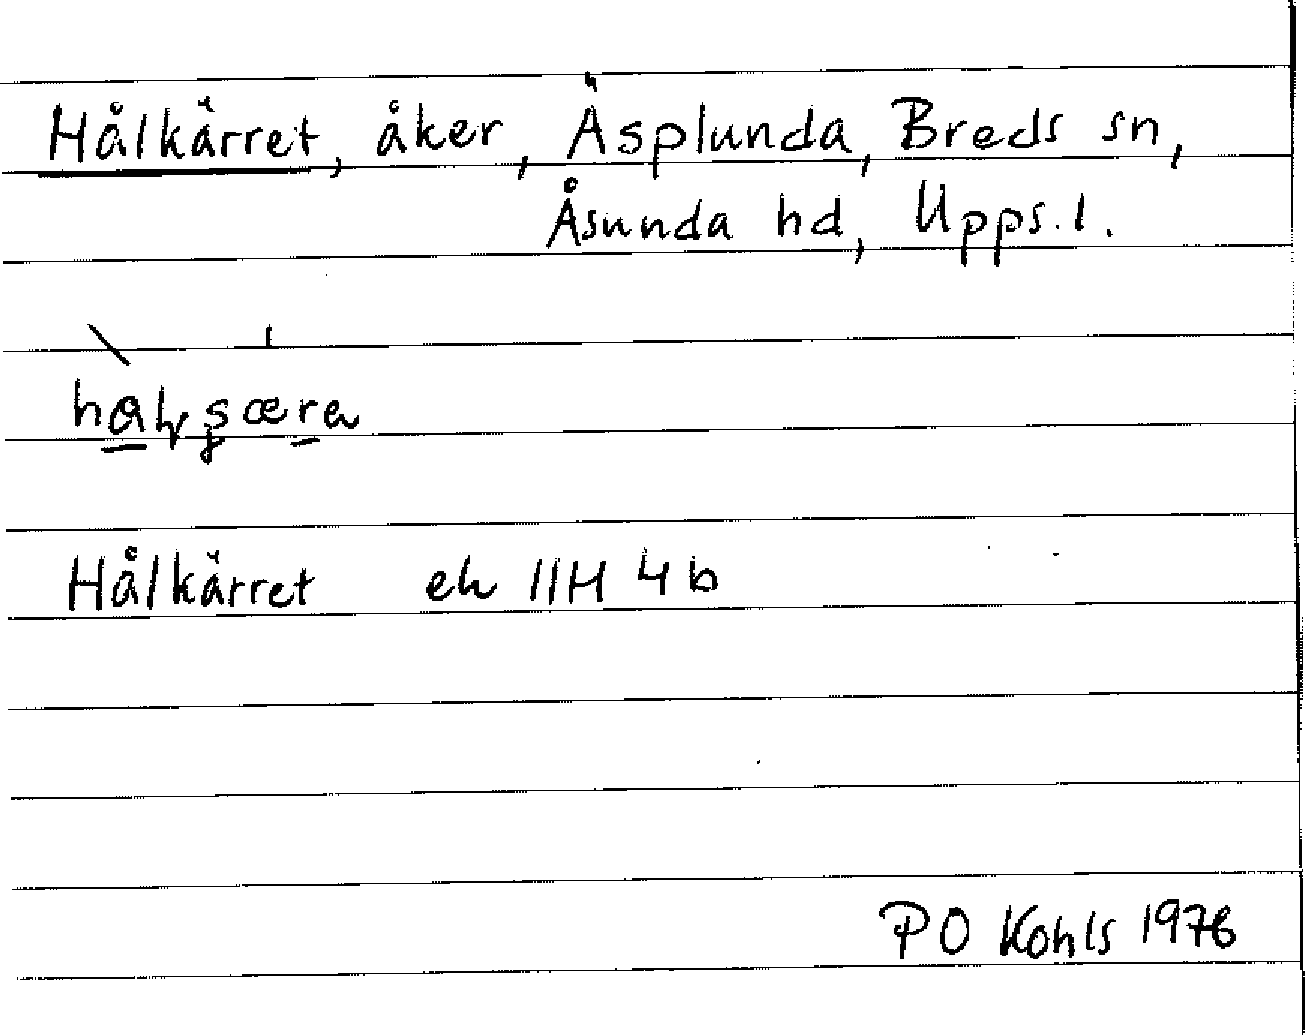 Hålkärret, åker, Äsplunda, Breds sn,
Åsunda hd, Upps. l.
Hålkärret ek 11H 4b
PO Kohls 1976